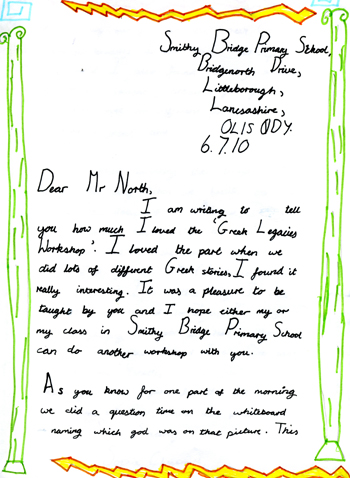 Smithy Bridge Primary School,
Bridgenorth Drive,
Littleborough,
Lancsashire,
OL15 0DY.
6.7.10
Dear Mr North,
I am writing to tell
you how much I loved the 'Greek Legacies
Workshop'. I loved the part when we
did lots of different Greek stories, I found it
really interesting. It was a pleasure to be
taught by you and I hope either my or
my class in Smithy Bridge Primary School
can do another workshop with you.
As you know for one part of the morning
we did a question time on the whiteboard
naming which god was on that picture. This